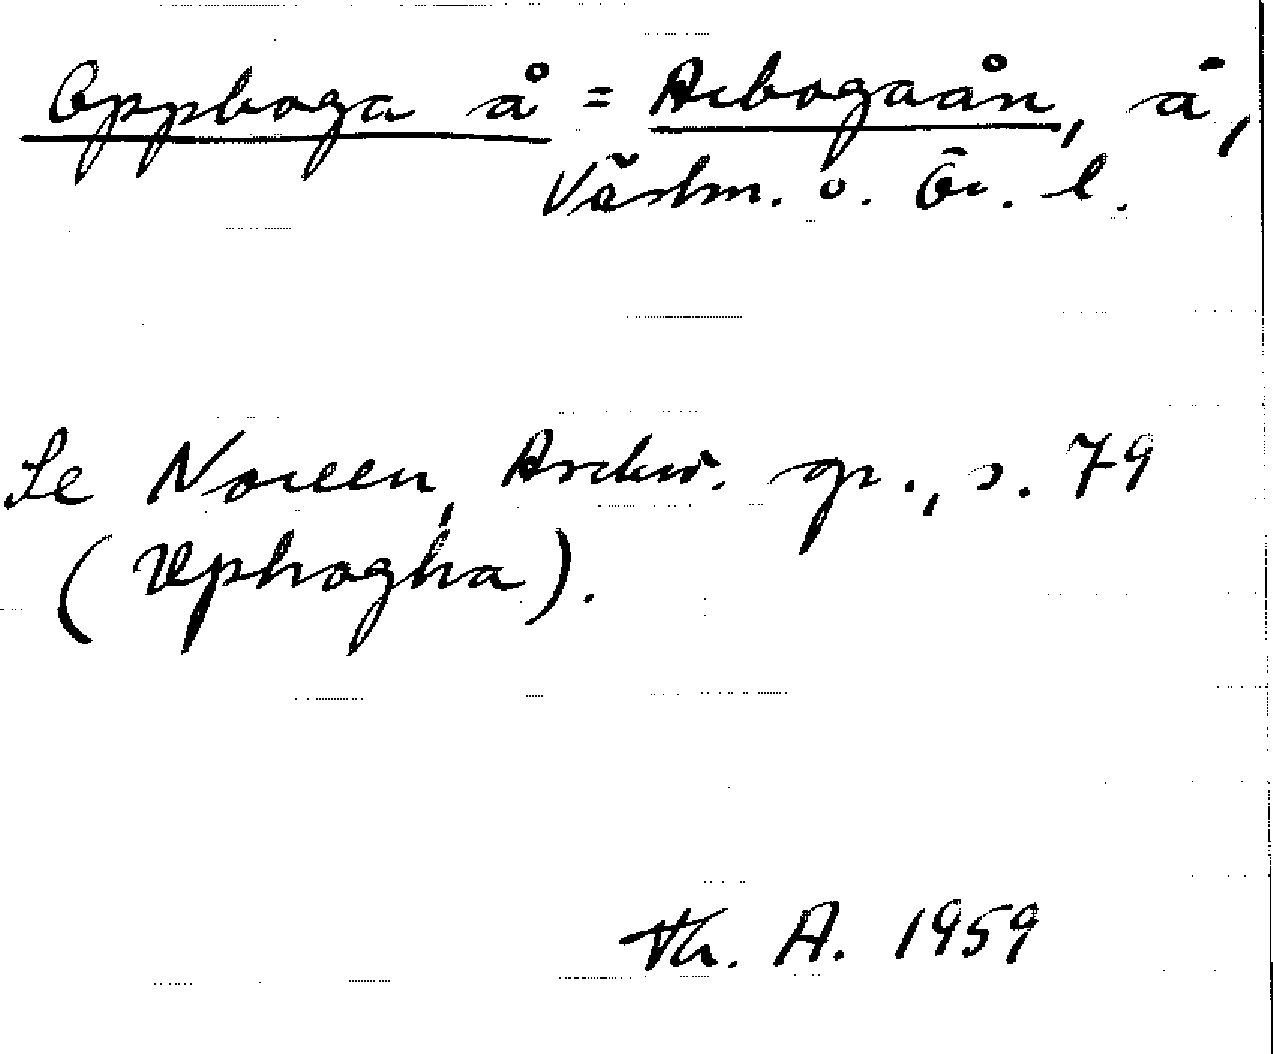 Oppboga å = Arbogaån, å,
Västm. o. Ör. l.
Se Noreen, Ardsv. gr., s. 79
(Vphogha).
Th. A. 1959